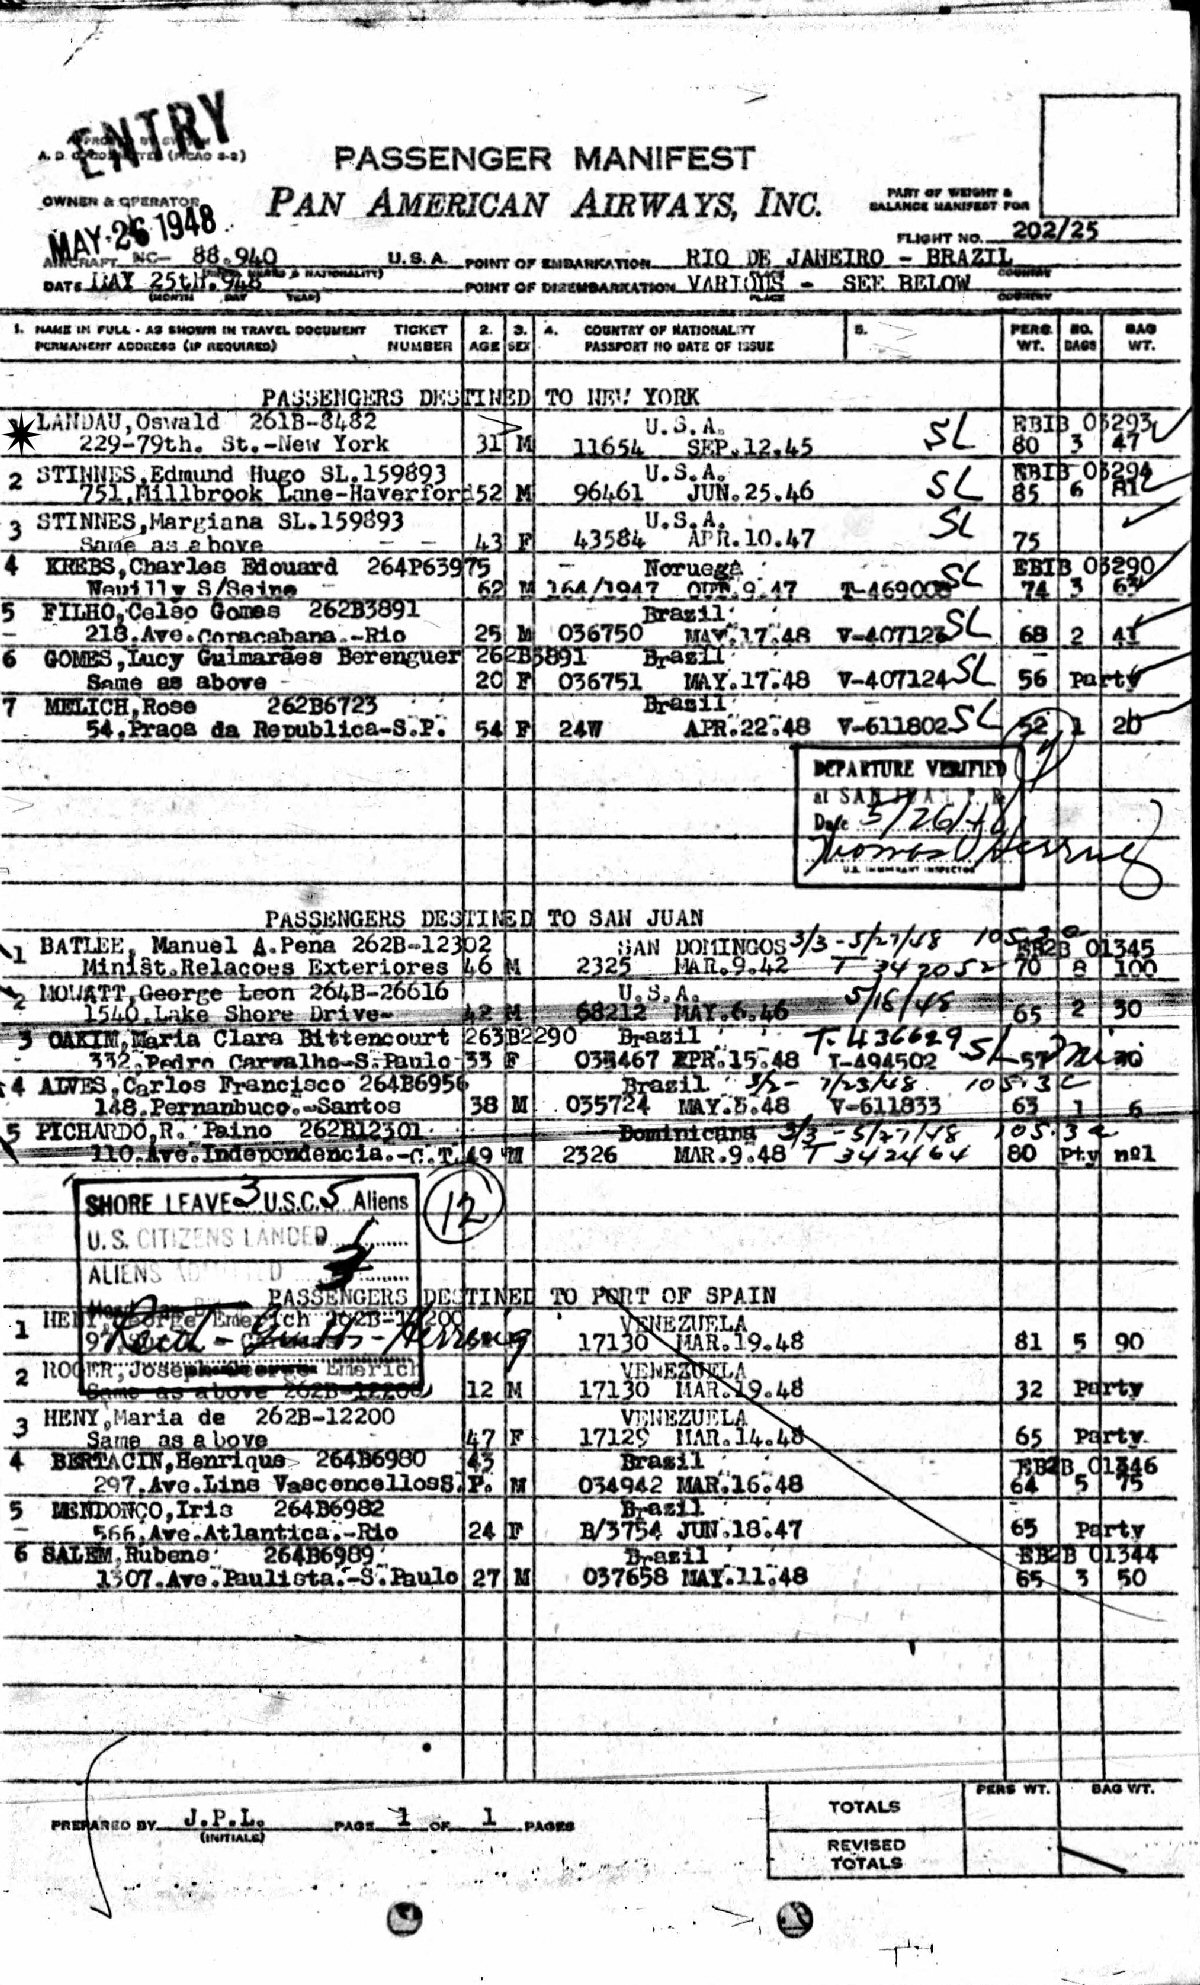 ENTRY
PASSENGER MANIFEST
OWNER & OPERATOR
PAN AMERICAN AIRWAYS, INC.
PART OF WEIGHT &
BALANCE MANIFEST FOR
MAY 26 1948
FLIGHT NO. 202/25
AIRCRAFT NC- 88.940 U.S.A. POINT OF EMBARKATION RIO DE JANEIRO - BRAZIL
DATE MAY 25th.948 POINT OF DISEMBARKATION VARIOUS - SEE BELOW
(MONTH DAY YEAR) PLACE COUNTRY
1. NAME IN FULL - AS SHOWN IN TRAVEL DOCUMENT TICKET 2. 3. 4. COUNTRY OF NATIONALITY 5. PERS. NO. BAG
PERMANENT ADDRESS (IF REQUIRED) NUMBER AGE SEX PASSPORT NO DATE OF ISSUE WT. BAGS WT.
PASSENGERS DESTINED TO NEW YORK
LANDAU,Oswald 261B-8482 U.S.A. SL EBIB 03293
229-79th. St.-New York 31 M 11654 SEP.12.45 80 3 47
2 STINNES,Edmund Hugo SL.159893 U.S.A. SL EBIB 03294
751,Millbrook Lane-Haverford 52 M 96461 JUN.25.46 85 6 81
3 STINNES,Margiana SL.159893 U.S.A. SL
Same as above - - 43 F 43584 APR.10.47 75
4 KREBS,Charles Edouard 264P63975 Noruega SL EBIB 03290
Neuilly S/Seine 62 M 164/1947 9.47 74 3 63
5 FILHO,Celso Gomes 262B3891 Brazil SL
218.Ave.Coracabana.-Rio 25 M 036750 MAY.17.48 V-407123 68 2 41
6 GOMES,Lucy Guimarães Berenguer 262B3891 Brazil SL
Same as above 20 F 036751 MAY.17.48 V-407124 56 Party
7 MELICH,Rose 262B6723 Brasil SL
54.Praça da Republica-S.P. 54 F 24W APR.22.48 V-611802 52 1 20
DEPARTURE VERIFIED
at SAN JUAN P.R.
Date 5/26/48
U.S. IMMIGRANT INSPECTOR
PASSENGERS DESTINED TO SAN JUAN
1 BATLEE, Manuel A.Pena 262B-12302 SAN DOMINGOS 3/3-5/27/48 EB2B 01345
Minist.Relacoes Exteriores 46 M 2325 MAR.9.42 T 342052 70 8 100
2 MOWATT,George Leon 264B-26616 U.S.A. 5/18/48
1540.Lake Shore Drive- 42 M 68212 MAY.6.46 65 2 30
3 OAKIM,Maria Clara Bittencourt 263B2290 Brazil T-436629 SL
332.Pedro Carvalho-S.Paulo 33 F 035467 APR.15.48 57
4 ALVES,Carlos Francisco 264B6956 Brazil 7/23/48
148.Pernanbuco.-Santos 38 M 035724 MAY.5.48 V-611833 63 1 6
5 PICHARDO,R. Paino 262B12301 Dominicana 3/3-5/27/48
110.Ave.Independencia.-C.T. 49 M 2326 MAR.9.48 T 342464 80 Pty nº1
SHORE LEAVE 3 U.S.C. 5 Aliens 12
U.S. CITIZENS LANDED 1
ALIENS ADMITTED
PASSENGERS DESTINED TO PORT OF SPAIN
1 HENY,George Emerich 262B-12200 VENEZUELA
17130 MAR.19.48 81 5 90
2 ROGER,Joseph Emerich VENEZUELA
Same as above 262B-12200 12 M 17130 MAR.19.48 32 Party
3 HENY,Maria de 262B-12200 VENEZUELA
Same as above 47 F 17129 MAR.14.48 65 Party
4 BERTACIN,Henrique 264B6980 43 Brasil EB2B 01346
297.Ave.Lins VascencellosS.P. M 034942 MAR.16.48 64 5 75
5 MENDONÇO,Iris 264B6982 Brazil
566.Ave.Atlantica.-Rio 24 F B/3754 JUN.18.47 65 Party
6 SALEM,Rubens 264B6989 Brasil EB2B 01344
1307.Ave.Paulista.-S.Paulo 27 M 037658 MAY.11.48 65 3 50
PERS WT. BAG WT.
TOTALS
PREPARED BY J.P.L. PAGE 1 OF 1 PAGES
(INITIALS)
REVISED
TOTALS